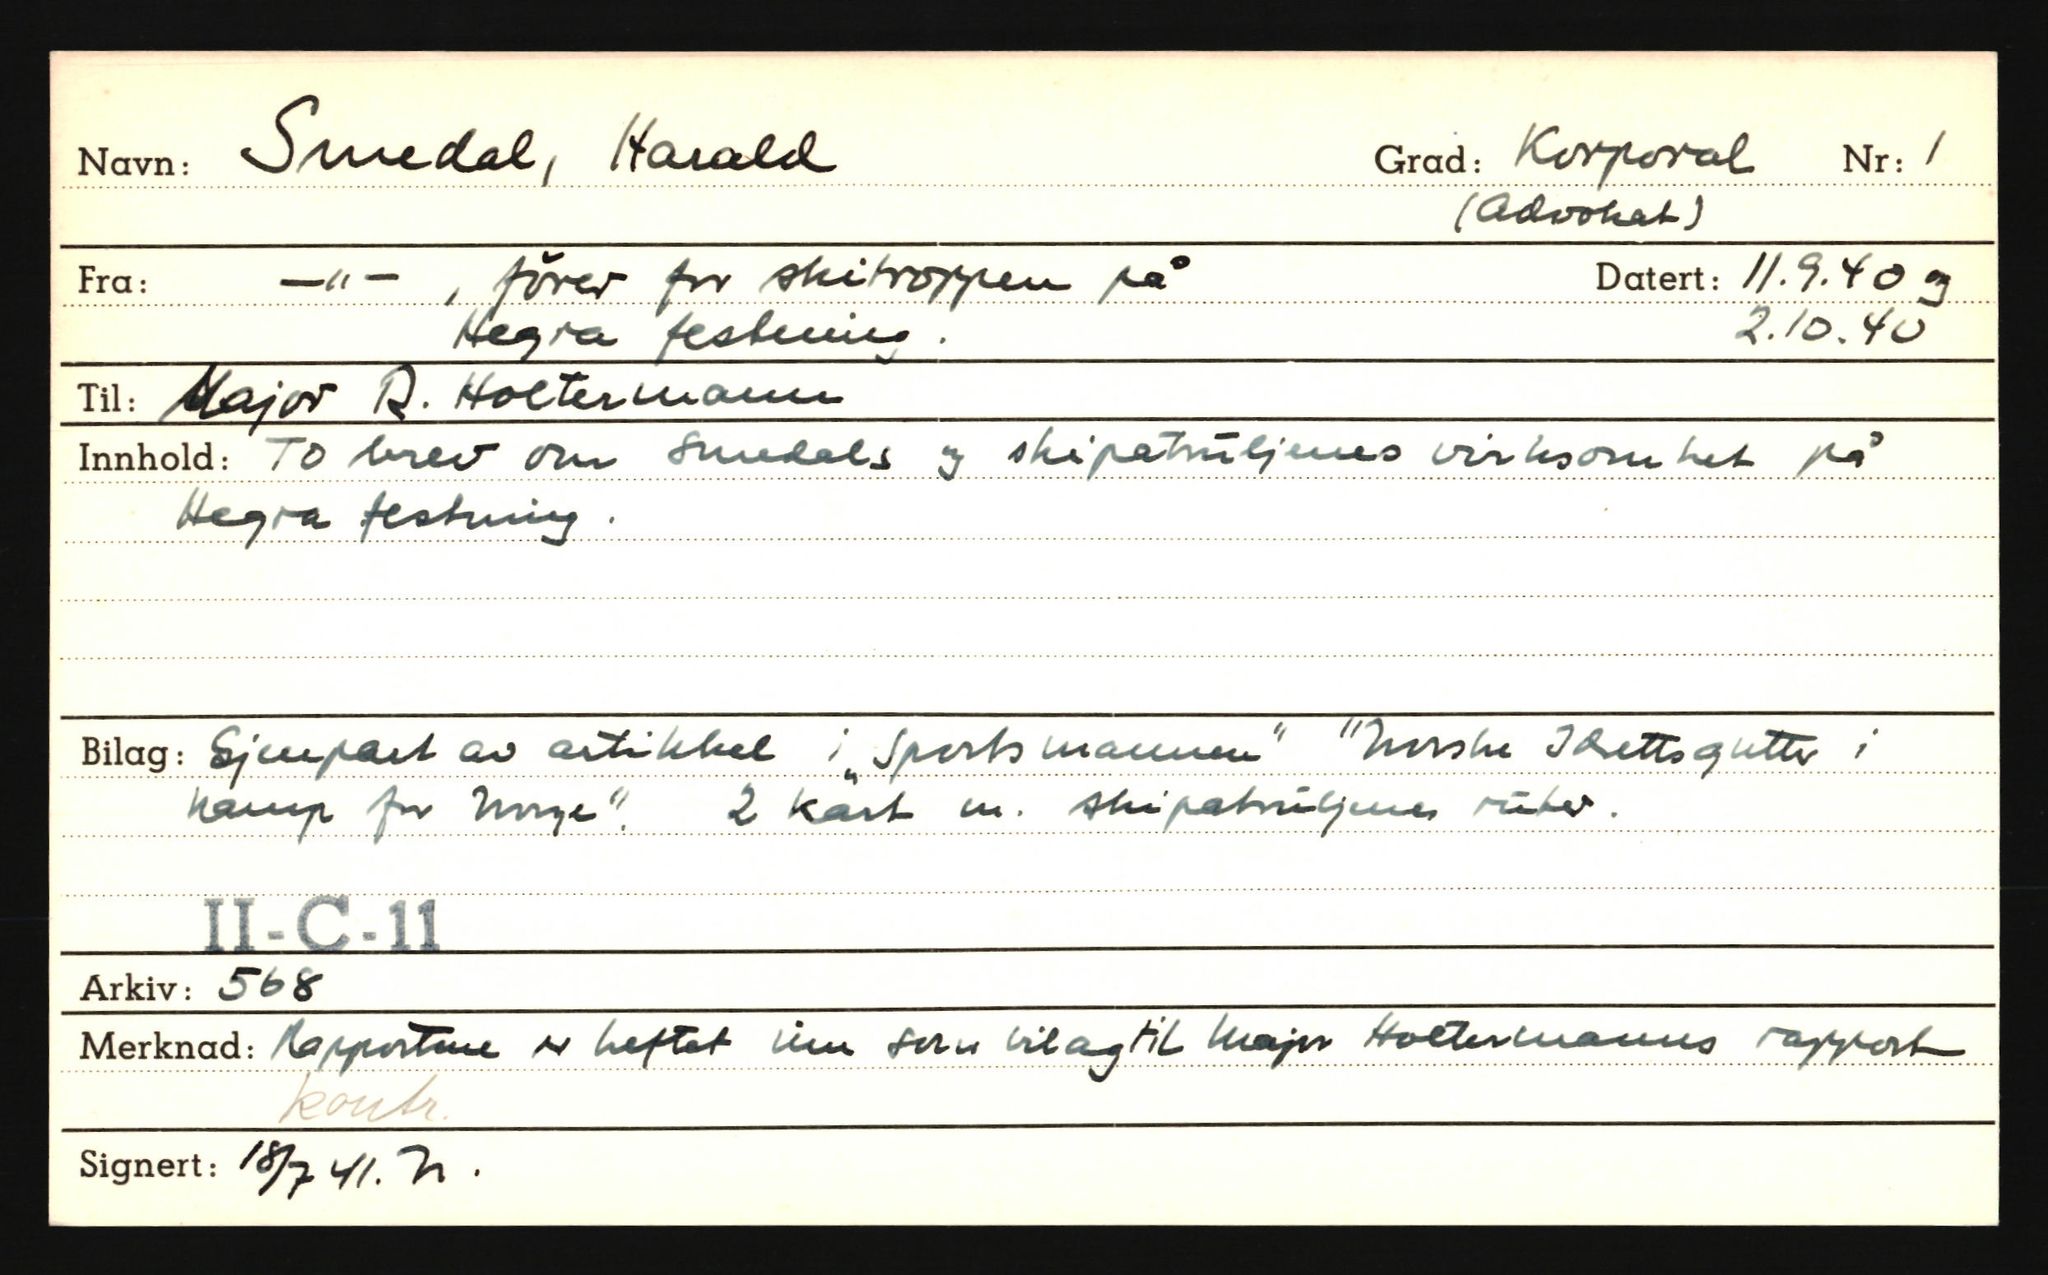 Navn: Smedal, Harald Grad: Korporal Nr: 1
(Advokat)
Fra: —"— , förer for skitroppen på Datert: 11.9.40 og
Hegra festning. 2.10.40
Til: Major R. Holtermann
Innhold: To brev om Smedals og skipatruljenes virksomhet på
Hegra festning.
Bilag: Gjenpart av artikkel i „Sportsmannen" "Norske Idrettsgutter i
kamp for Norge". 2 kart m. skipatruljenes ruter.
II-C-11
Arkiv: 568
Merknad: Rapportene er heftet inn som bilag til Major Holtermanns rapport
kontr.
Signert: 18/7 41. N.